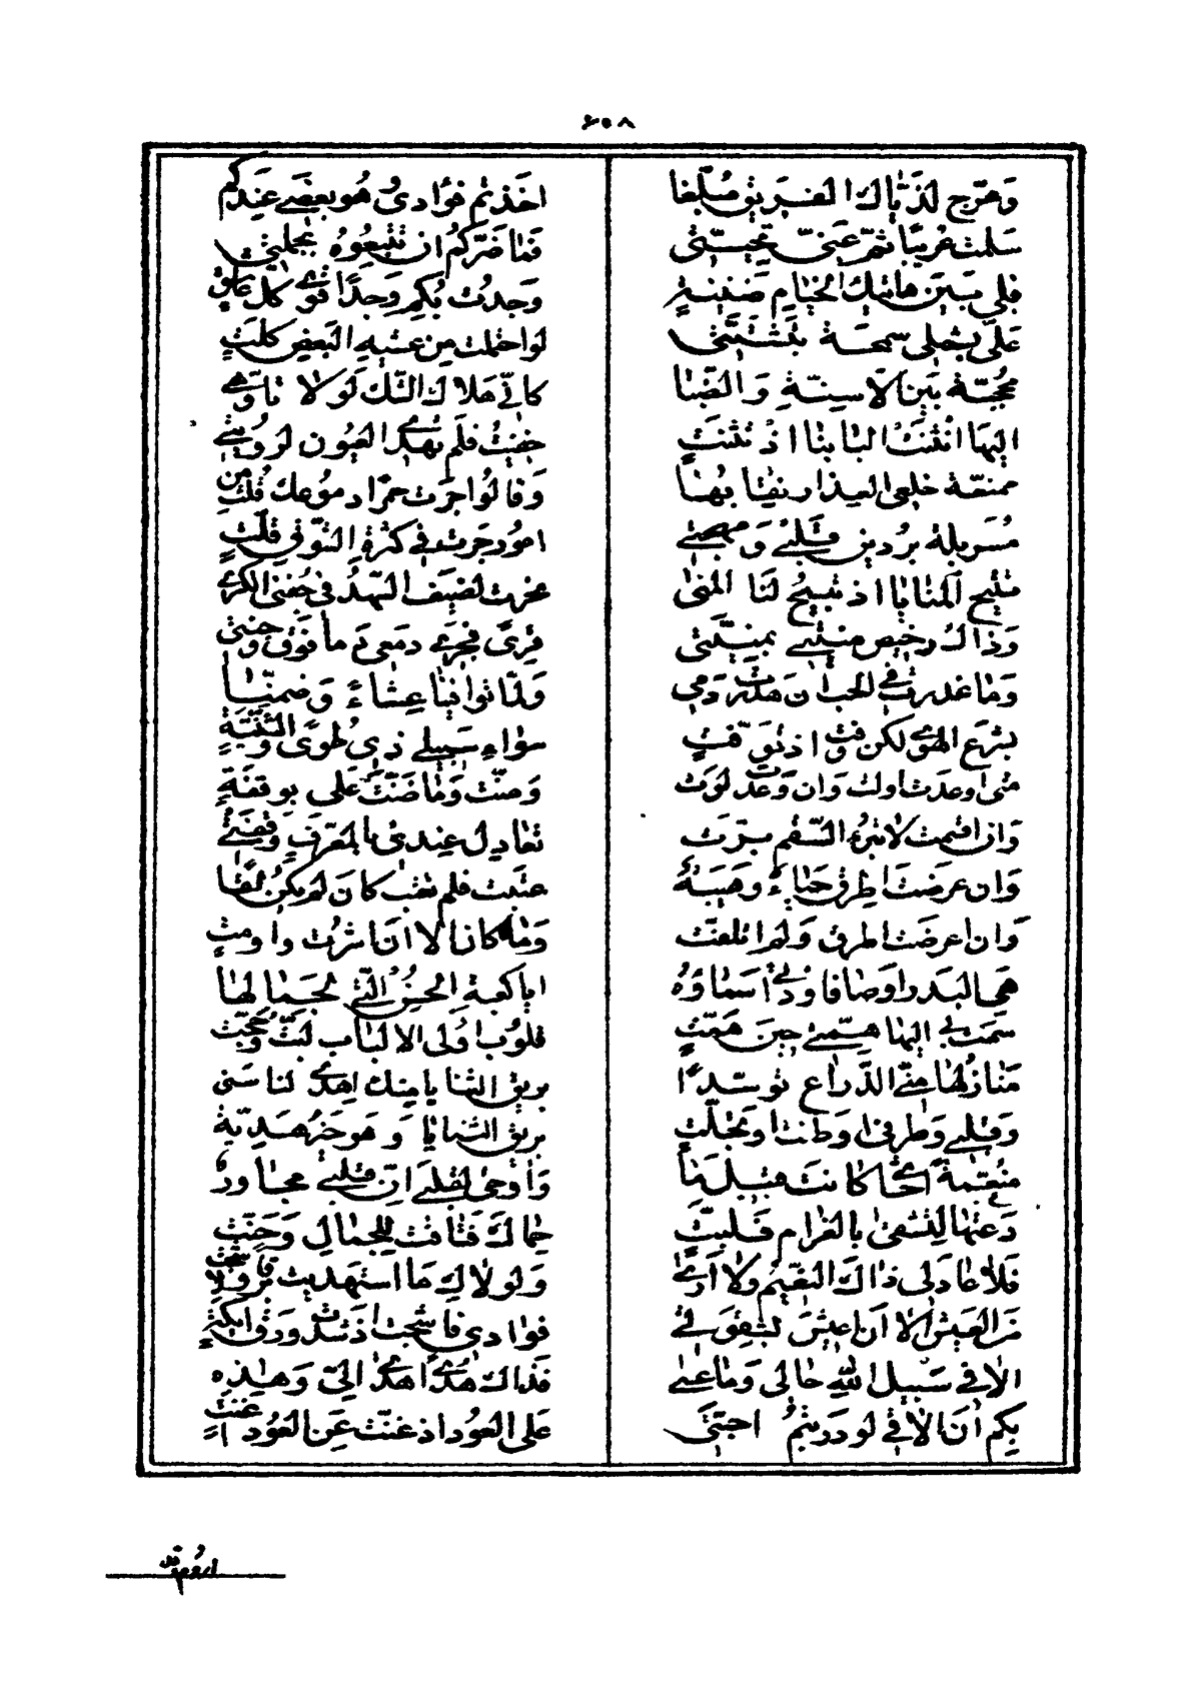 ۶۰۸
وَعَرِّج لذَيّاك الفَريق مُبلّغا
سَلمت عُريبًا ثمّ عَنّي تحيّتي
فلي بَين هاتيك الخيام ضَنينة
عَليّ بجمعي سمحَة بتشتّتي
محجّبة بَين الاسِنّةِ وَالظّبا
اليها انثنَت البابنا اذ تثنّت
ممنعّة خلعي العِذار نقابُها
مُسَربلة بُردين قلبي وَمهجتي
تتيح المنايا اذ تبيحُ لنا المنىٰ
وَذاك رخيص منيتي بمنيّتي
وَما غدرت في الحبّ ان هدرت دَمي
بشرع الهوى لكن وفت اذ توَفّت
متى اوعدت اولت وَان وَعدَت لوَت
وَان اقسمت لا تبرءُ السّقم برّت
وَان عرضَت اطرق حَياءً وهَيبَةً
وَان اعرضَت اشفق وَلم اتلفّت
هي البَدر اوصافا وذاتي سماؤهُ
سمَت بي اليها همّتي حين هَمّت
مَنازلها منّي الذّراع توسّدًا
وَقلبي وَطرفي اوطنت او تجلّت
منعّمة احشاي كانت قبيل ما
دَعتها لِتشقىٰ بالغرام فلبّت
فلا عاد لي ذاك النّعيم ولا ارى
مِن العيش الا ان اعيش لشقوتي
الا في سَبيل اللّهِ حالي وَما عسى
بكم ان الاقي لو دَريتُمُ احبّتي
اخَذتم فؤادي وهُو بعضي عِندكم
فما ضرّكم ان تتبعوهُ بجملتي
وَجدتُ بكم وَجدًا قوى كل عاشق
لو احتملت من عبئه البَعض كلّتِ
كانّي هلال الشّك لولا تاوّهي
خفيتُ فلم تهد العيون لرؤيتي
وَقالوا جرت حمرًا دموعك قلت من
امور جرت في كثرة الشّوق قلّتِ
نحرت لضيف السّهد في جفني الكرى
قرىً فجرى دمعي دما فوق وجنتي
وَلمّا توافينا عِشاءً وَضمنّا
سواء سَبيلي ذي طوىً والثّنيّة
وَمنّت وَما ضنّت عَلي بوَقفَةٍ
تعادل عندي بالمعرّف وَقفتي
عتبت فلم تعتب كان لم يكن لقًا
وَما كان الا ان اشرت واومت
ايا كعبةِ الحسنِ الّتي لجمالها
قلوبُ اولى الالباب لبّت وحجّت
بريق الثنايا منك اهدى لنا سنى
بريق الثنايا وَهو خيرُ هَديّة
وَاوحىٰ لقلبي انّ قلبي مجاورٌ
حماك فتاقت للجمالِ وَحنّت
وَلولاكِ ما استهديت برقًا ولا شجت
فؤادي فاشجت اذ شدت ورق ايكة
فذاك هُدى اهدى اليّ وَهٰذِه
على العود اذ غنّت عَن العود اغنت
اروم وقد